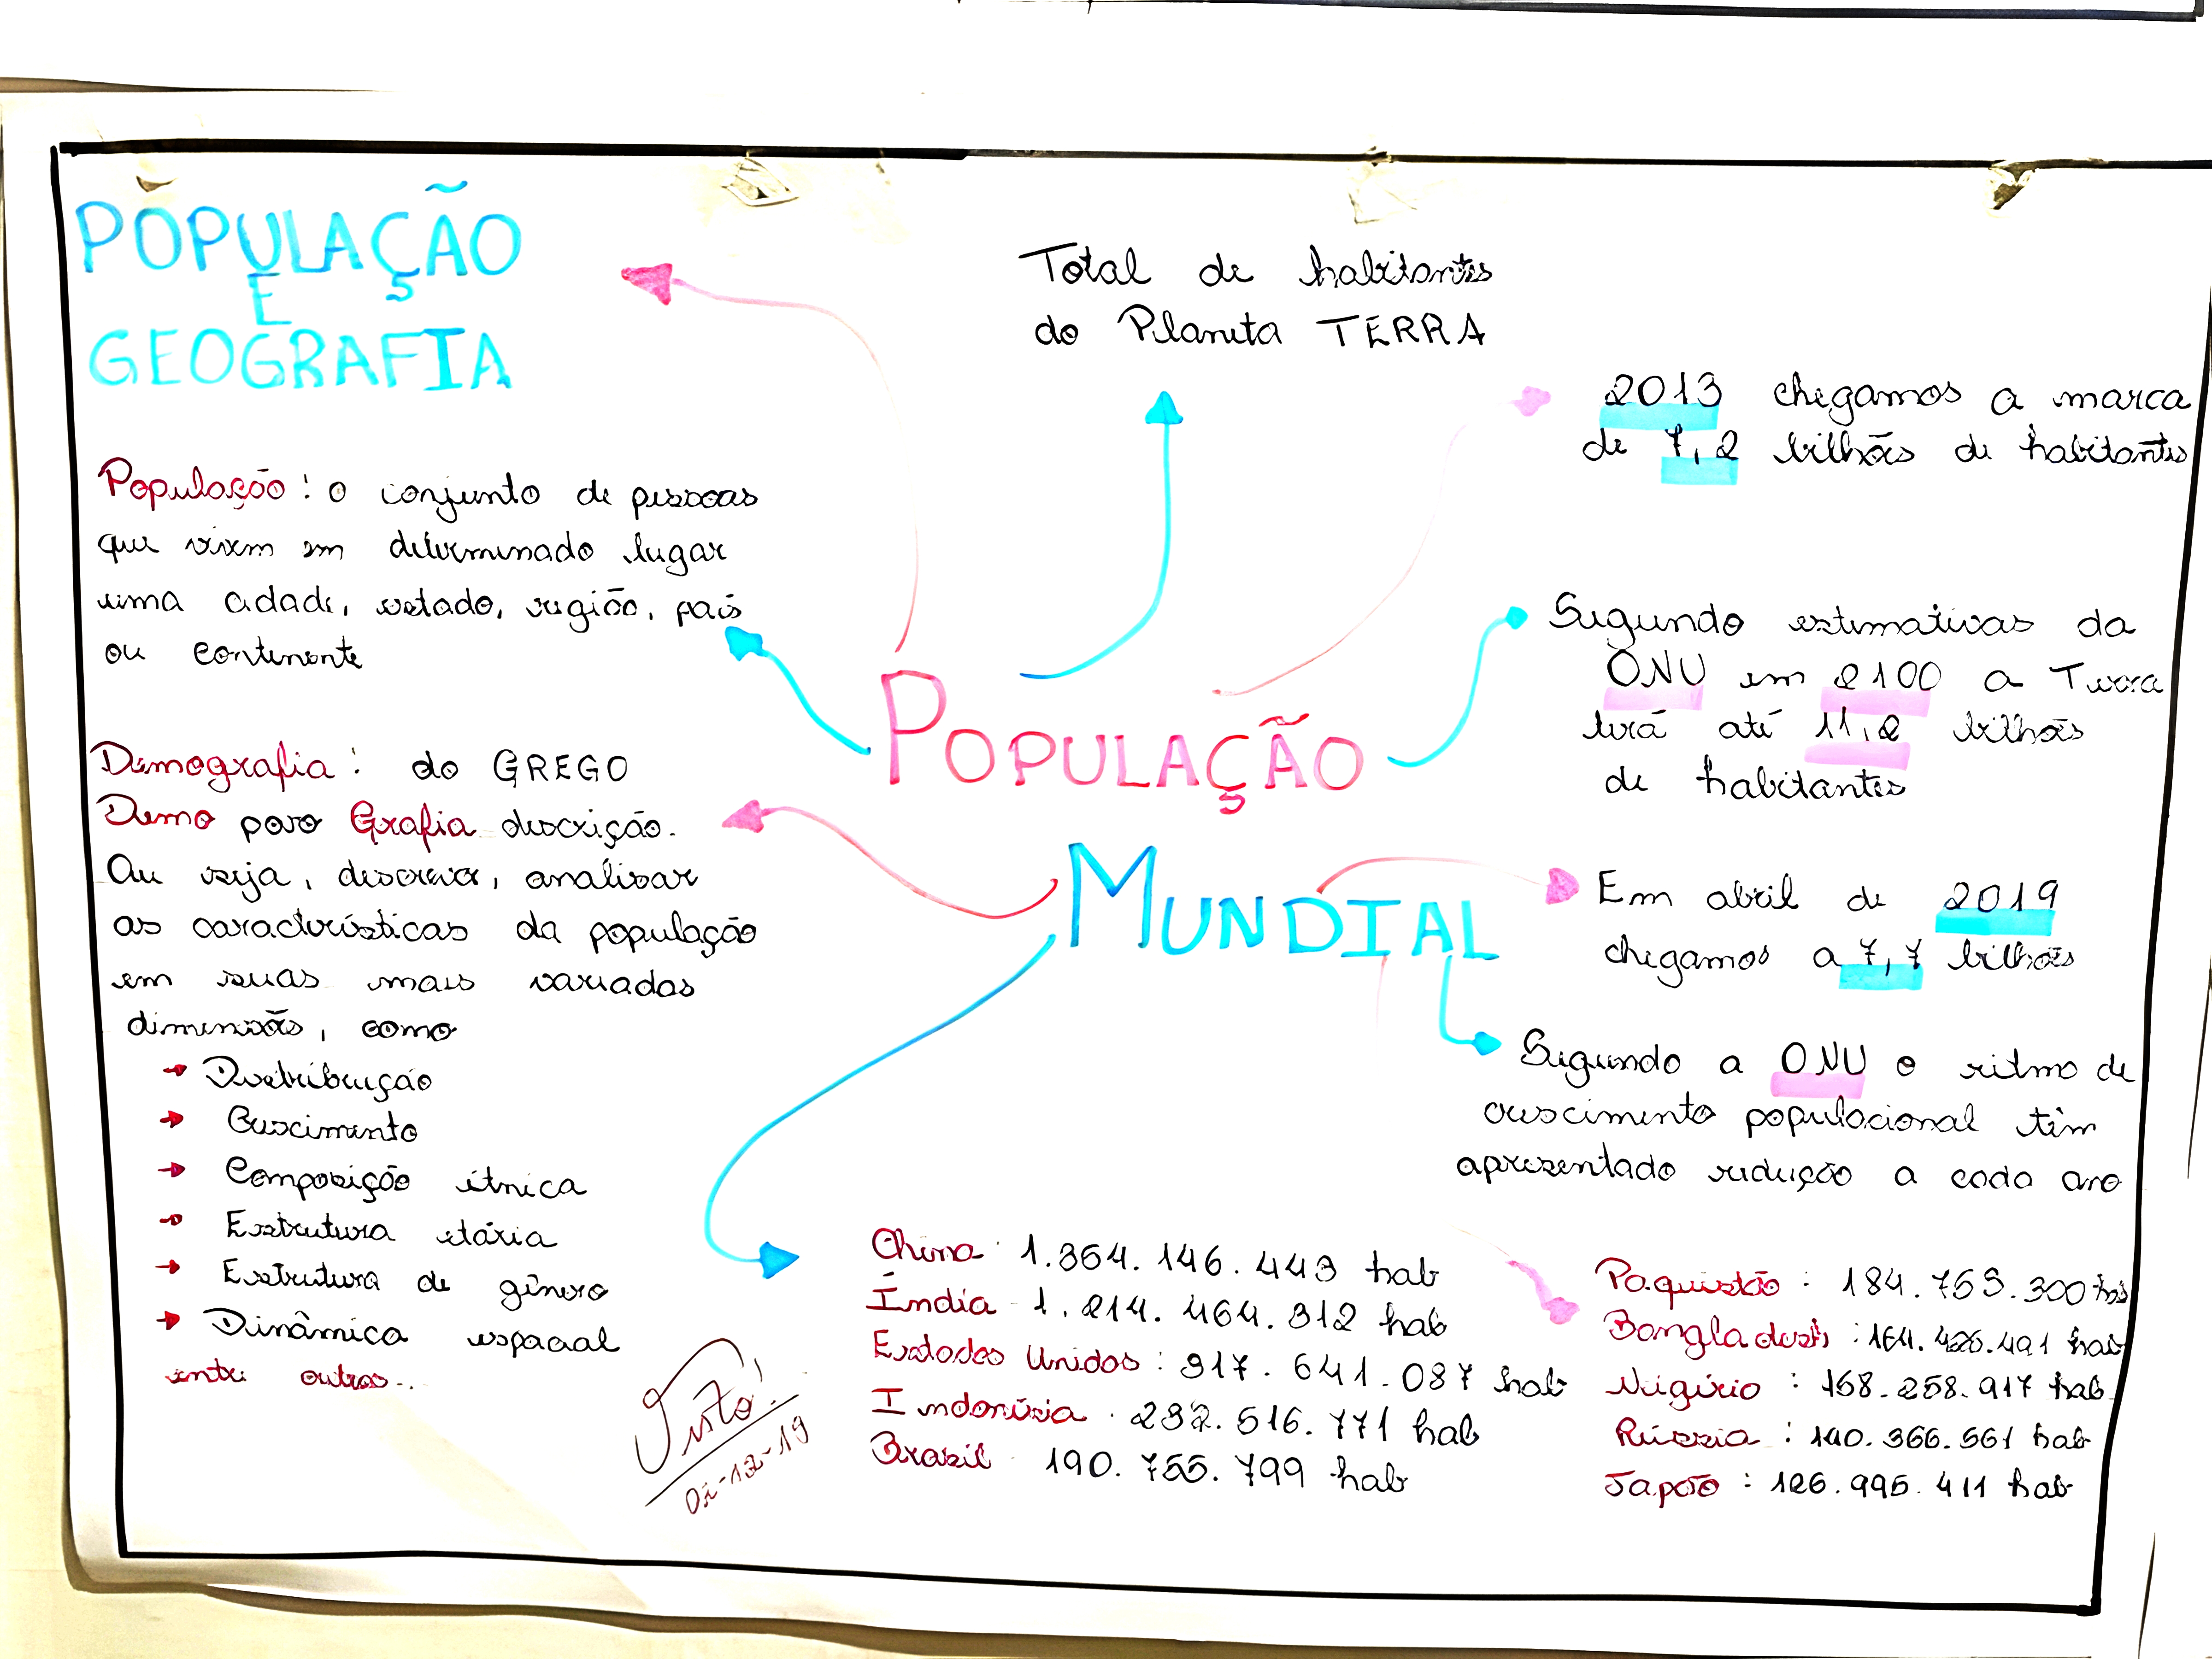 POPULAÇÃO
E
GEOGRAFIA
População: o conjunto de pessoas
que vivem em determinado lugar
uma cidade, estado, região, país
ou continente
Demografia: do GREGO
Demo povo Grafia descrição.
Ou seja, descrever, analisar
as características da população
em suas mais variadas
dimensões, como
→ Distribuição
→ Crescimento
→ Composição étnica
→ Estrutura etária
→ Estrutura de gênero
→ Dinâmica espacial
entre outros..
Total de habitantes
do Planeta TERRA
POPULAÇÃO
MUNDIAL
2013 chegamos a marca
de 7,2 bilhões de habitantes
Segundo estimativas da
ONU em 2100 a Terra
terá até 11,2 bilhões
de habitantes
Em abril de 2019
chegamos a 7,7 bilhões
Segundo a ONU o ritmo de
crescimento populacional têm
apresentado redução a cada ano
China 1.354.146.443 hab
Índia 1.214.464.312 hab
Estados Unidos: 317.641.087 hab
Indonésia 232.516.771 hab
Brasil 190.755.799 hab
Paquistão: 184.753.300 hab
Bangladesh: 164.425.491 hab
Nigéria: 158.258.917 hab
Rússia: 140.366.561 hab
Japão: 126.995.411 hab
Visto!
-12-19